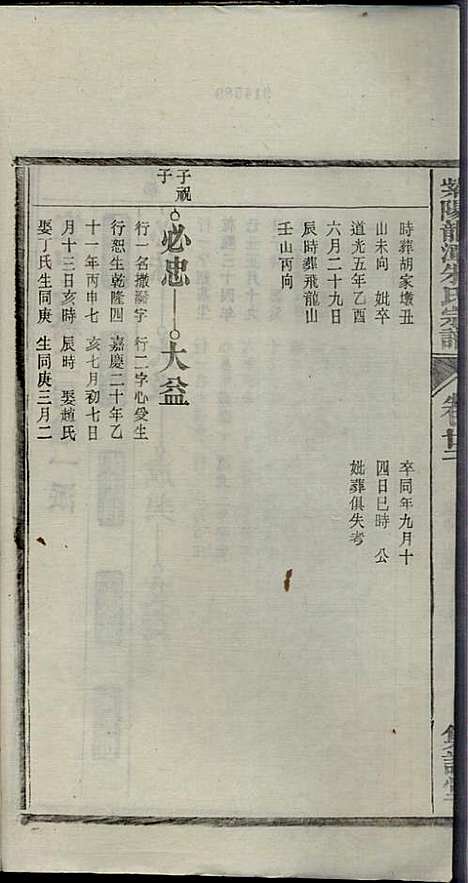 時葬胡家墩丑
山未向 妣卒
道光五年乙酉
六月二十九日
辰時葬飛龍山
壬山丙向
卒同年九月十
四日巳時 公
妣葬俱失考
子祝
子
必忠
大益
行一名撒 字
行恕生乾隆四
十一年丙申七
月十三日亥時
娶丁氏生同庚
行二字心愛生
嘉慶二十年乙
亥七月初七日
辰時 娶趙氏
生同庚三月二
紫陽 朱氏宗譜
卷廿二